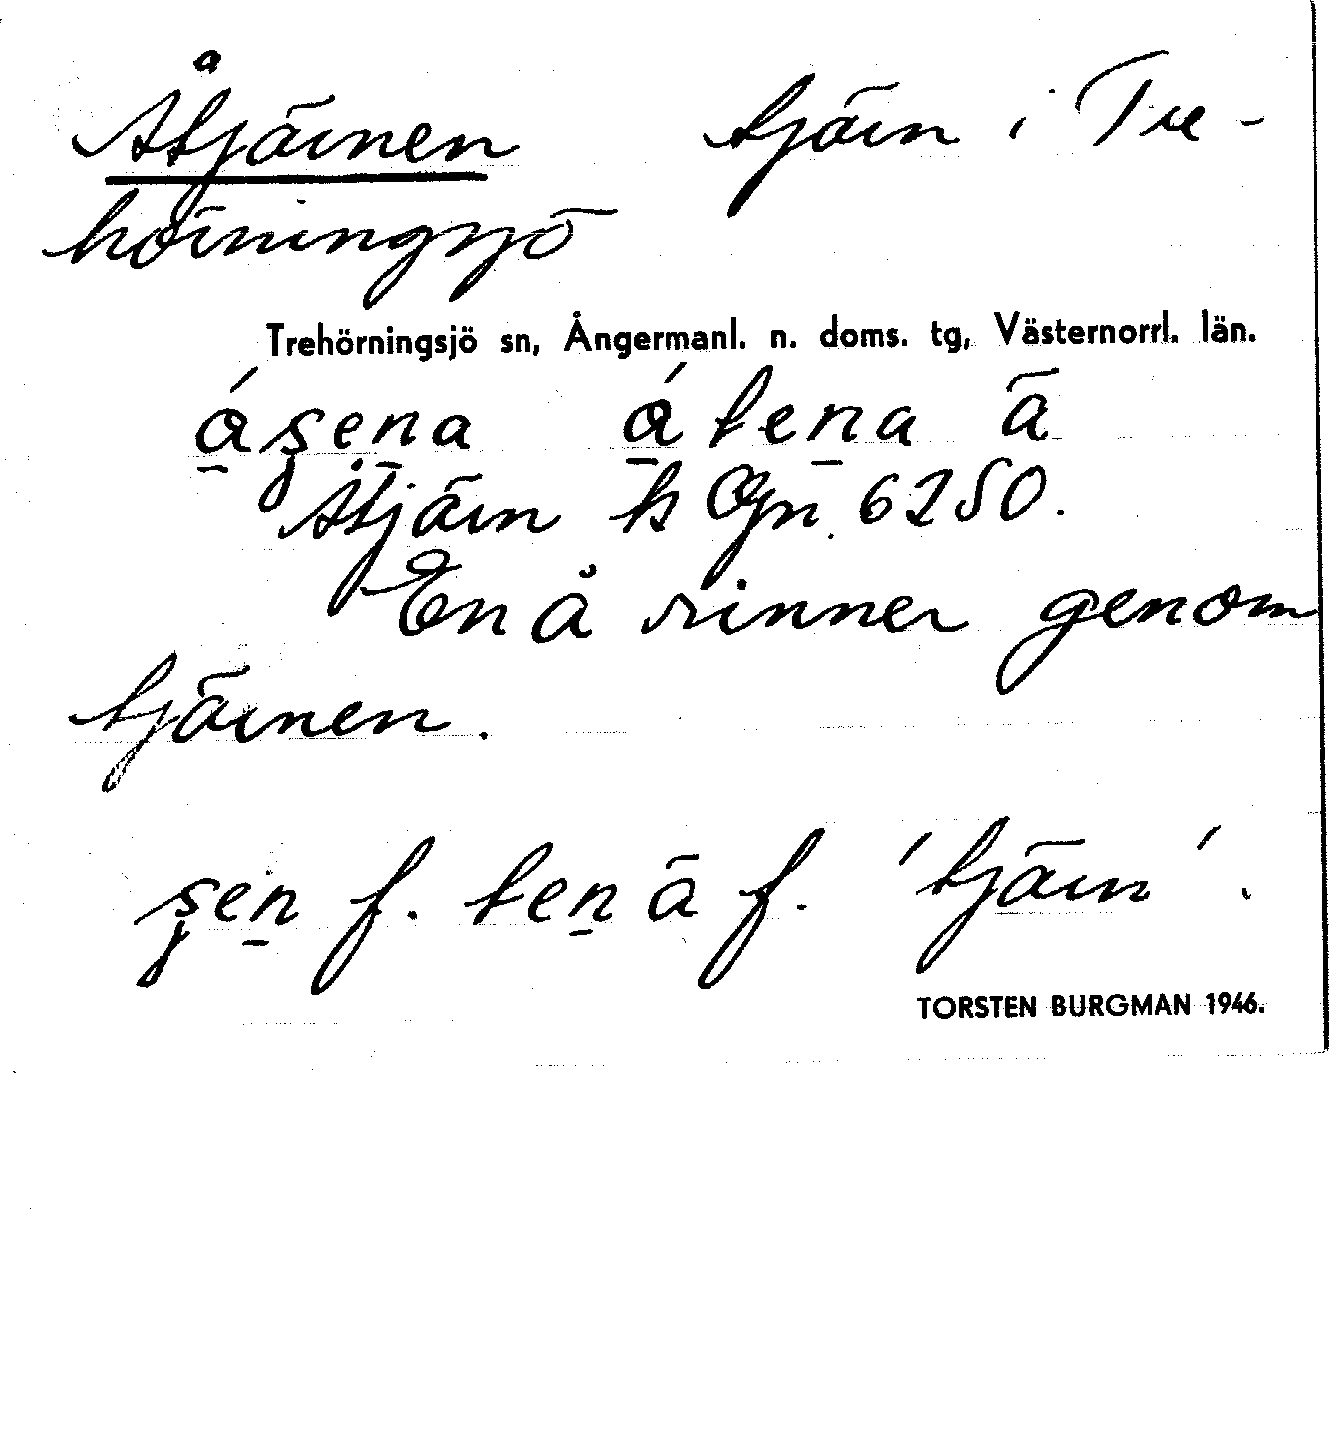 Åtjärnen tjärn i Tre-
hörningsjö
Trehörningsjö sn, Ångermanl. n. doms. tg, Västernorrl. län.
Åtjärn k
En å rinner genom
tjärnen.
f. f. 'tjärn'.
TORSTEN BURGMAN 1946.